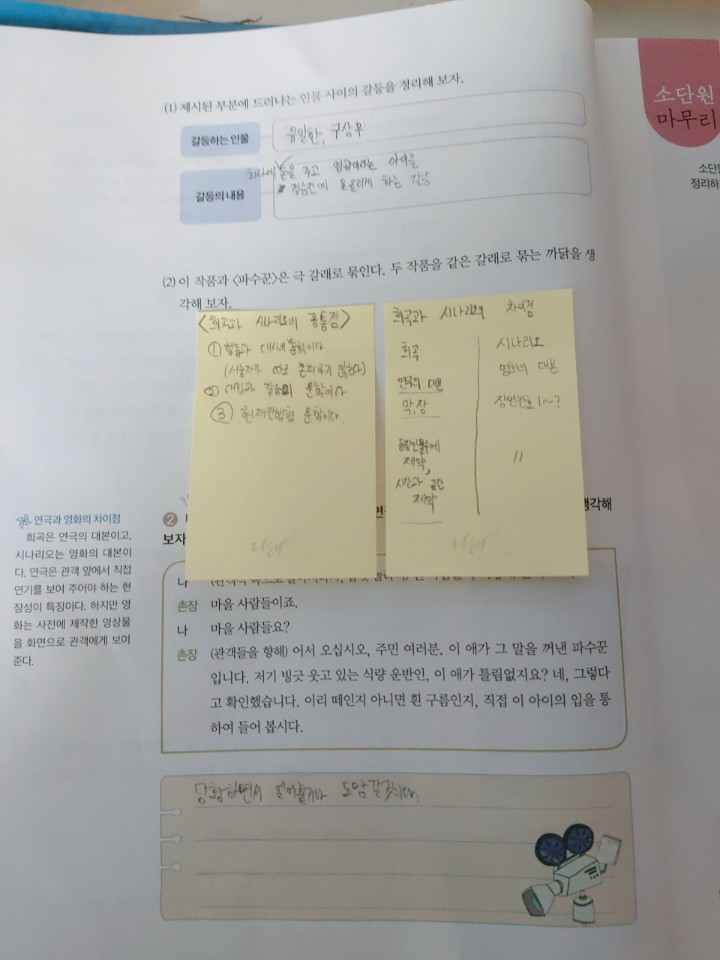 (1) 제시된 부분에 드러나는 인물 사이의 갈등을 정리해 보자.
갈등하는 인물
유일한, 구상우
갈등의 내용
주고
하는 갈등
(2) 이 작품과 〈파수꾼〉은 극 갈래로 묶인다. 두 작품을 같은 갈래로 묶는 까닭을 생
각해 보자.
<희곡과 시나리오의 공통점>
① 행동과 대사의 문학이다.
(서술자가 따로 존재하지 않는다)
② 대립과 갈등의 문학이다
③ 현재진행형 문학이다.
희곡과 시나리오의 차이점
희곡
시나리오
연극의 대본
영화의 대본
막, 장
장면번호 1~?
등장인물수에
제약,
시간과 공간
제약
〃
소단원
마무리
소단원
정리하
연극과 영화의 차이점
희곡은 연극의 대본이고,
시나리오는 영화의 대본이
다. 연극은 관객 앞에서 직접
연기를 보여 주어야 하는 현
장성이 특징이다. 하지만 영
화는 사전에 제작한 영상물
을 화면으로 관객에게 보여
준다.
2
생각해
보자
나
촌장 마을 사람들이죠.
나 마을 사람들요?
촌장 (관객들을 향해) 어서 오십시오, 주민 여러분. 이 애가 그 말을 꺼낸 파수꾼
입니다. 저기 빙긋 웃고 있는 식량 운반인, 이 애가 틀림없지요? 네, 그렇다
고 확인했습니다. 이리 떼인지 아니면 흰 구름인지, 직접 이 아이의 입을 통
하여 들어 봅시다.
당황하면서